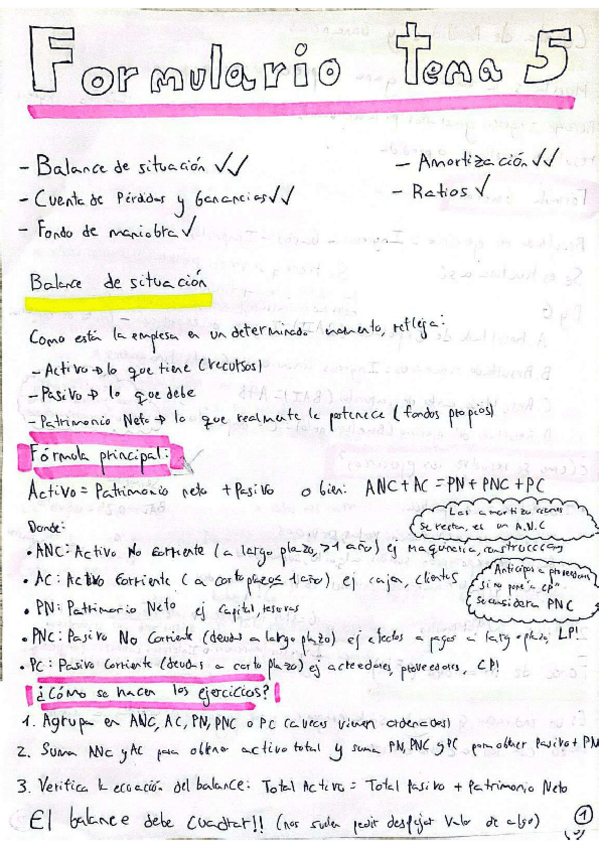 Formulario Tema 5
- Balance de situación ✓✓
- Cuenta de Pérdidas y Ganancias ✓✓
- Fondo de maniobra ✓
- Amortización ✓✓
- Ratios ✓
Balance de situación
Como está la empresa en un determinado momento, refleja:
- Activo → lo que tiene (recursos)
- Pasivo → lo que debe
- Patrimonio Neto → lo que realmente le pertenece (fondos propios)
Fórmula principal:
Activo = Patrimonio neto + Pasivo o bien: ANC + AC = PN + PNC + PC
Las amortizaciones
se restan, es un A.N.C
Donde:
• ANC: Activo No Corriente (a largo plazo, > 1 año) ej maquinaria, construcciones
• AC: Activo Corriente (a corto plazo ≤ 1 año) ej caja, clientes
Anticipos a proveedores
si no pone "a cp"
se considera PNC
• PN: Patrimonio Neto ej capital, reservas
• PNC: Pasivo No Corriente (deudas a largo plazo) ej efectos a pagar a largo plazo, LP!
• PC: Pasivo Corriente (deudas a corto plazo) ej acreedores, proveedores, CP!
¿Cómo se hacen los ejercicios?
1. Agrupa en ANC, AC, PN, PNC o PC (a veces vienen ordenados)
2. Suma ANC y AC para obtener activo total y suma PN, PNC y PC para obtener Pasivo + PN
3. Verifica la ecuación del balance: Total Activo = Total Pasivo + Patrimonio Neto
El balance debe CUADRAR!! (nos suelen pedir despejar valor de algo)
1